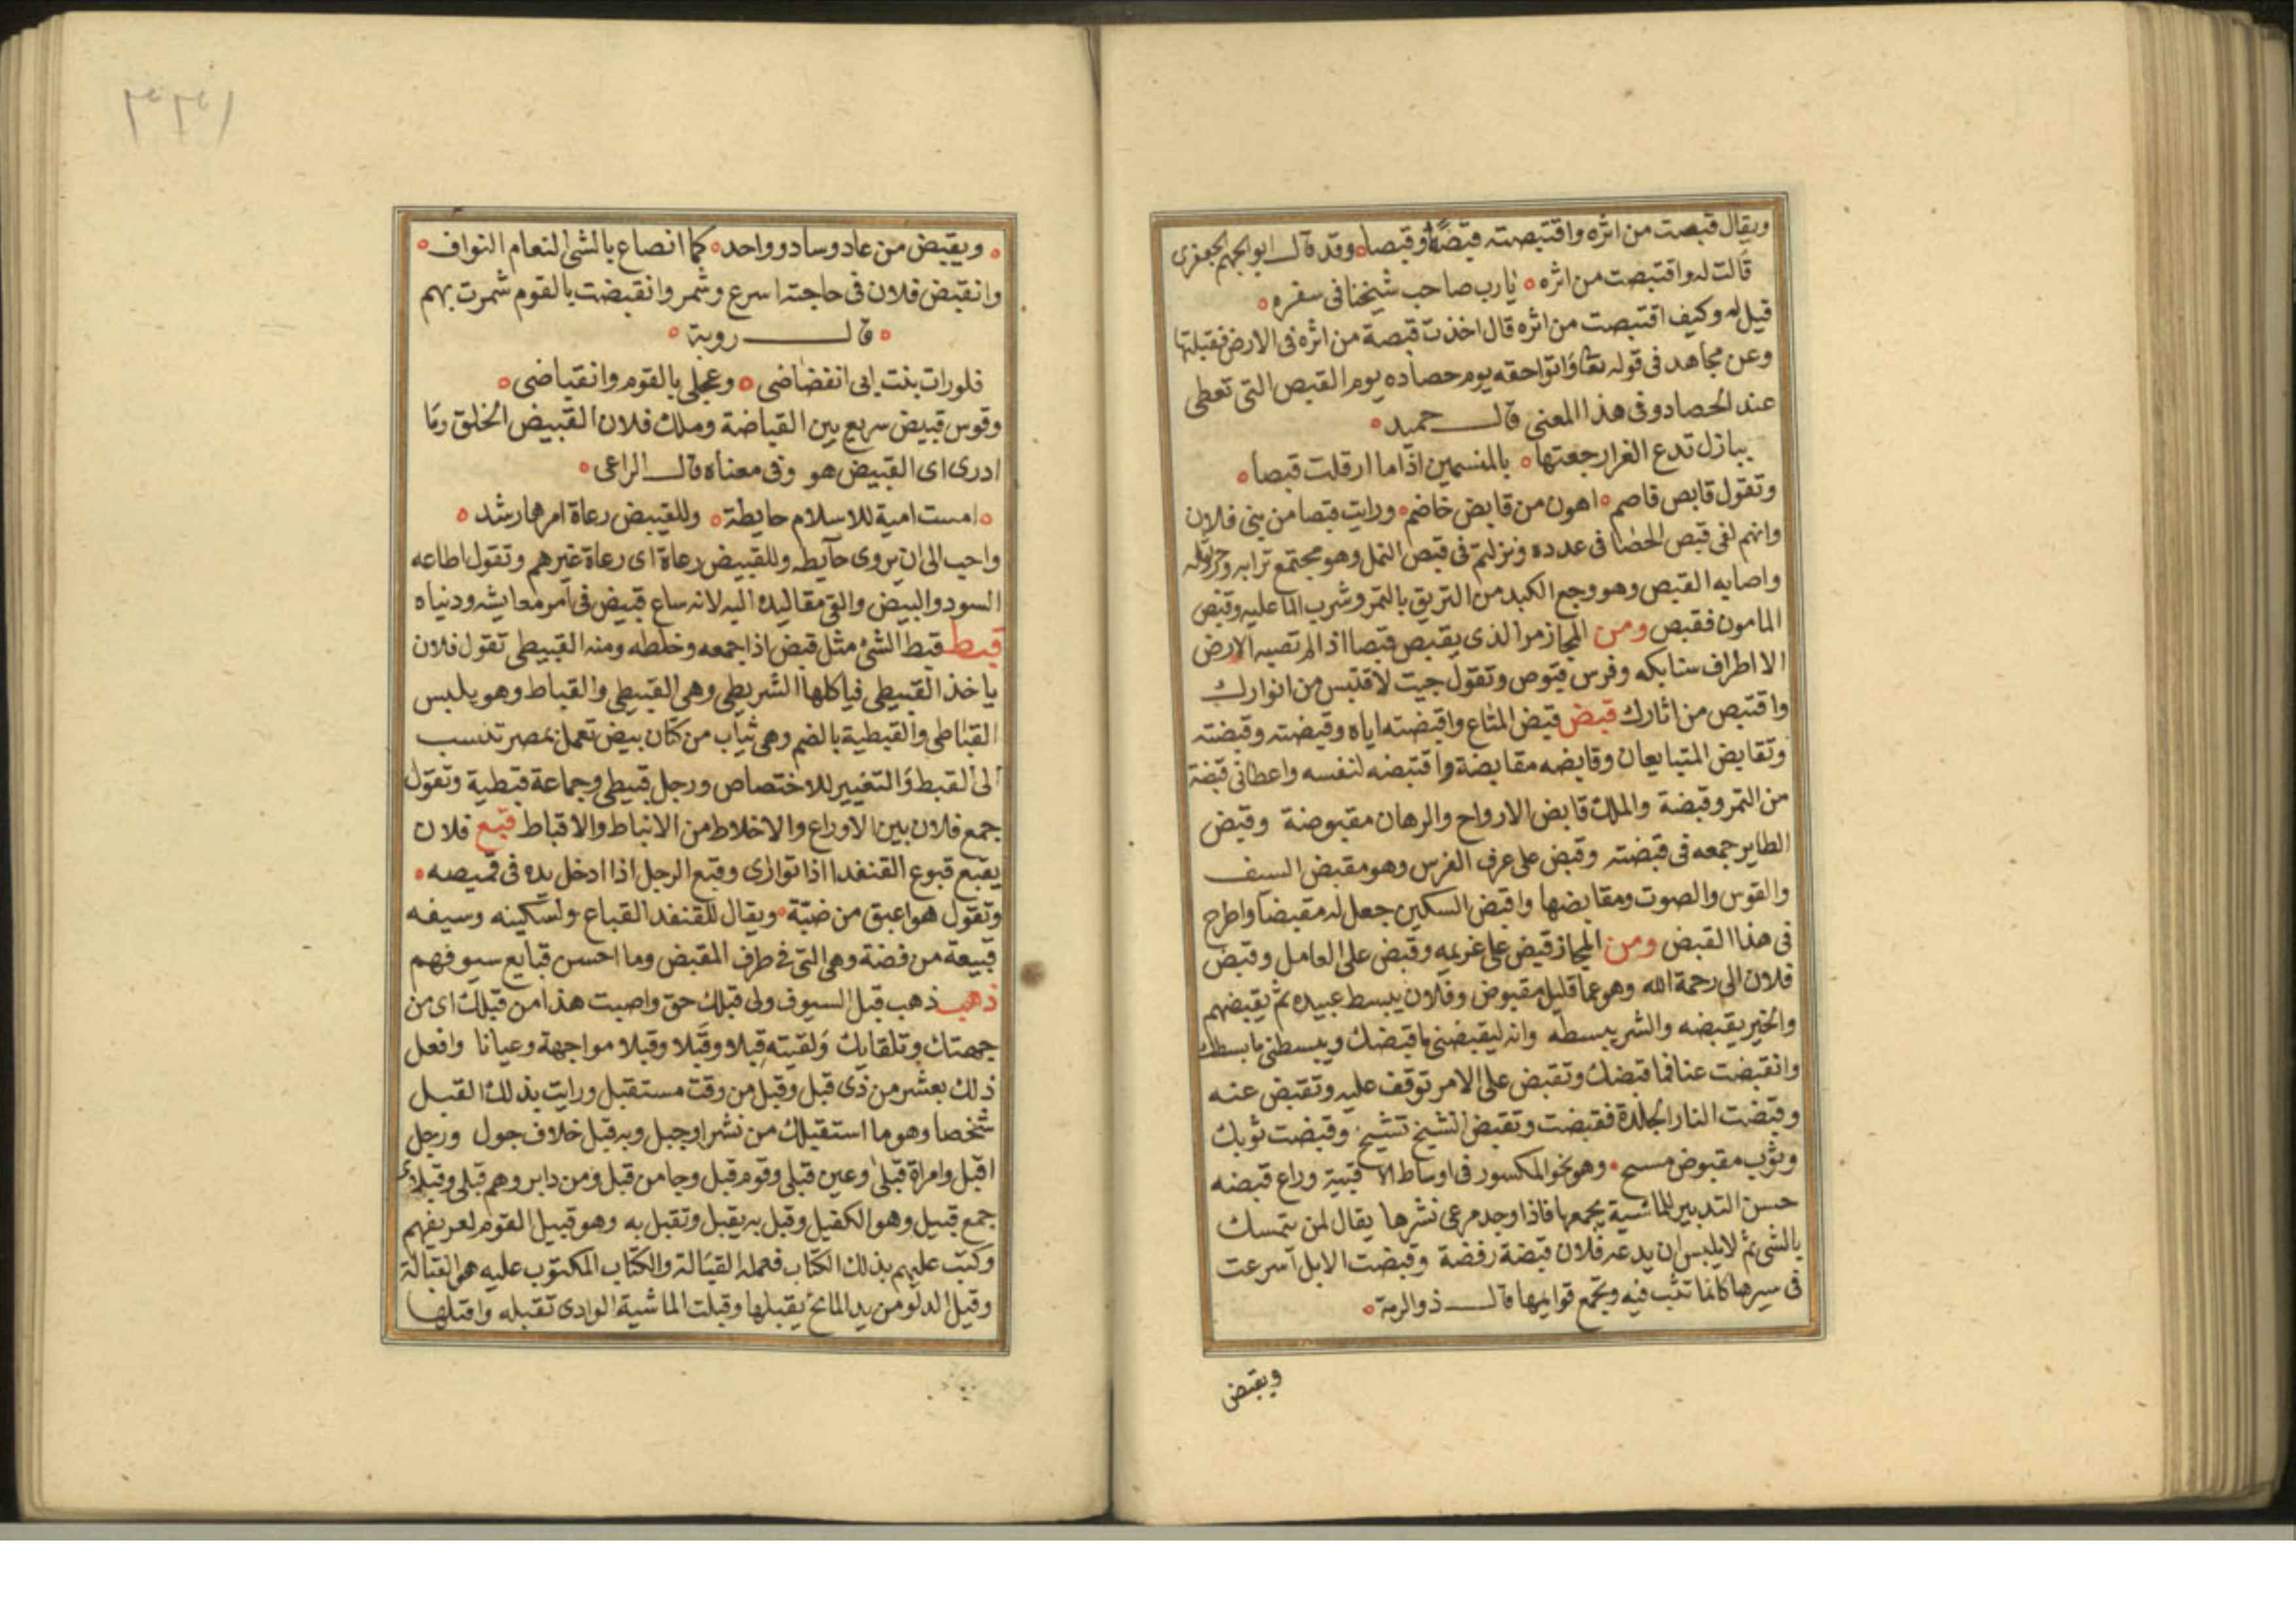 ويقال قبصت من اثره واقتبصته قبصة وقبصا وقد قال ابو الجهم الجعفرى
قالت له واقتبصت من اثره يا رب صاحب شيخنا فى سفره
قيل له وكيف اقتبصت من اثره قال اخذت قبصة من اثره فى الارض فقبلتها
وعن مجاهد فى قوله تعا واتواحقه يوم حصاده يوم القبص التى تعطى
عند الحصاد وفى هذا المعنى قال حميد
ببازل تدع الغرار جعتها بالمنسمين اذا ما ارقلت قبصا
وتقول قابص قاصم اهون من قابض خاضم ورايت قبصا من بنى فلان
وانهم لفى قبص الحصا فى عدده ونزلتم فى قبص النمل وهو مجتمع ترابه
واصابه القبص وهو وجع الكبد من التريق بالتمر وشرب الما عليه وقبص
المامون فقبص ومن المجاز مر الذى يقبص قبصا اذا لم تصبه الارض
الا اطراف سنابكه وفرس قبوص وتقول جيت لاقتبس من انوارك
واقتبص من اثارك قبض قبض المتاع واقبضته اياه وقبضته وقبضته
وتقابض المتبايعان وقابضه مقابضة واقتبضه لنفسه واعطانى قبضة
من التمر وقبضة والملك قابض الارواح والرهان مقبوضة وقبض
الطاير جمعه فى قبضته وقبض على عرف الفرس وهو مقبض السيف
والقوس والصوت ومقابضها واقبض السكين جعل له مقبضا واطرح
فى هذا القبض ومن المجاز قبض على غريمه وقبض على العامل وقبض
فلان الى رحمة الله وهو عما قليل مقبوض وفلان يبسط عبيده ثم يقبضهم
والخير يقبضه والشر يبسطه وانه ليقبضنى ما قبضك ويبسطنى ما بسطك
وانقبضت عنا فما قبضك وتقبض على الامر توقف عليه وتقبض عنه
وقبضت النار الجلدة فقبضت وتقبض الشيخ تشنج وقبضت ثوبك
وثوب مقبوض مسبح وهو نحو المكسور فى اوساط الا قبية وراع قبضه
حسن التدبير للماشية يجمعها فاذا وجد مرعى نشرها يقال لمن يتمسك
بالشى ثم لا يلبس ان يدعه فلان قبضة رفضة وقبضت الابل اسرعت
فى سيرها كانما تثب فيه وتجمع قوايمها قال ذو الرمة
ويقبض
١٣٣١
ويقبض من عاد وساد وواحد كما انصاع بالشى النعام النوافر
وانقبض فلان فى حاجته اسرع وشمر وانقبضت بالقوم شمرت بهم
قال روبة
فلو رات بنت ابى انفضاضى وعجلى بالقوم وانقباضى
وقوس قبيض سريع بين القباضة وملك فلان القبيض الخلق وما
ادرى اى القبيض هو وفى معناه قال الراعى
امست امية للاسلام حايطة وللقبيض رعاة امرها رشد
واحب الى ان يروى حآيطه وللقبيض رعاة اى رعاة غيرهم وتقول اطاعه
السود والبيض والقى مقاليده اليه لانه ساع قبيض فى امر معايشه ودنياه
قبط قبط الشئ مثل قبض اذا جمعه وخلطه ومنه القبيطى تقول فلان
ياخذ القبيطى فياكلها الشريطى وهى القبيطى والقباط وهو يلبس
القباطى والقبطية بالضم وهى ثياب من كتان بيض تعمل بمصر تنسب
الى القبط والتغيير للاختصاص ورجل قبطى وجماعة قبطية وتقول
جمع فلان بين الاوراع والاخلاط من الانباط والاقباط قبع فلان
يقبع قبوع القنفد اذا توارى وقبع الرجل اذا ادخل يده فى قميصه
وتقول هو اعبق من ضبة ويقال للقنفد القباع ولسكينه وسيفه
قبيعة من فضة وهى التى فى طرف المقبض وما احسن قبايع سيوفهم
ذهب ذهب قبل السيوف ولى قبلك حق واصبت هذا من قبلك اى من
جهتك وتلقايك ولقيته قبلا وقبلا وقبلا مواجهة وعيانا وافعل
ذلك بعشر من ذى قبل وقبل من وقت مستقبل ورايت بذلك القبل
شخصا وهو ما استقبلك من نشز او جبل وبه قبل خلاف حول ورجل
اقبل وامراة قبلى وعين قبلى وقوم قبل وجا من قبل ومن دابر وهم قبلى وقبلا
جمع قبيل وهو الكفيل وقبل به يقبل وتقبل به وهو قبيل القوم لعريفهم
وكتب عليهم بذلك الكتاب فعمله القبالة والكتاب المكتوب عليه هو القبالة
وقبل الدلو من يد الماتح يقبلها وقبلت الماشية الوادى تقبله واقبلها